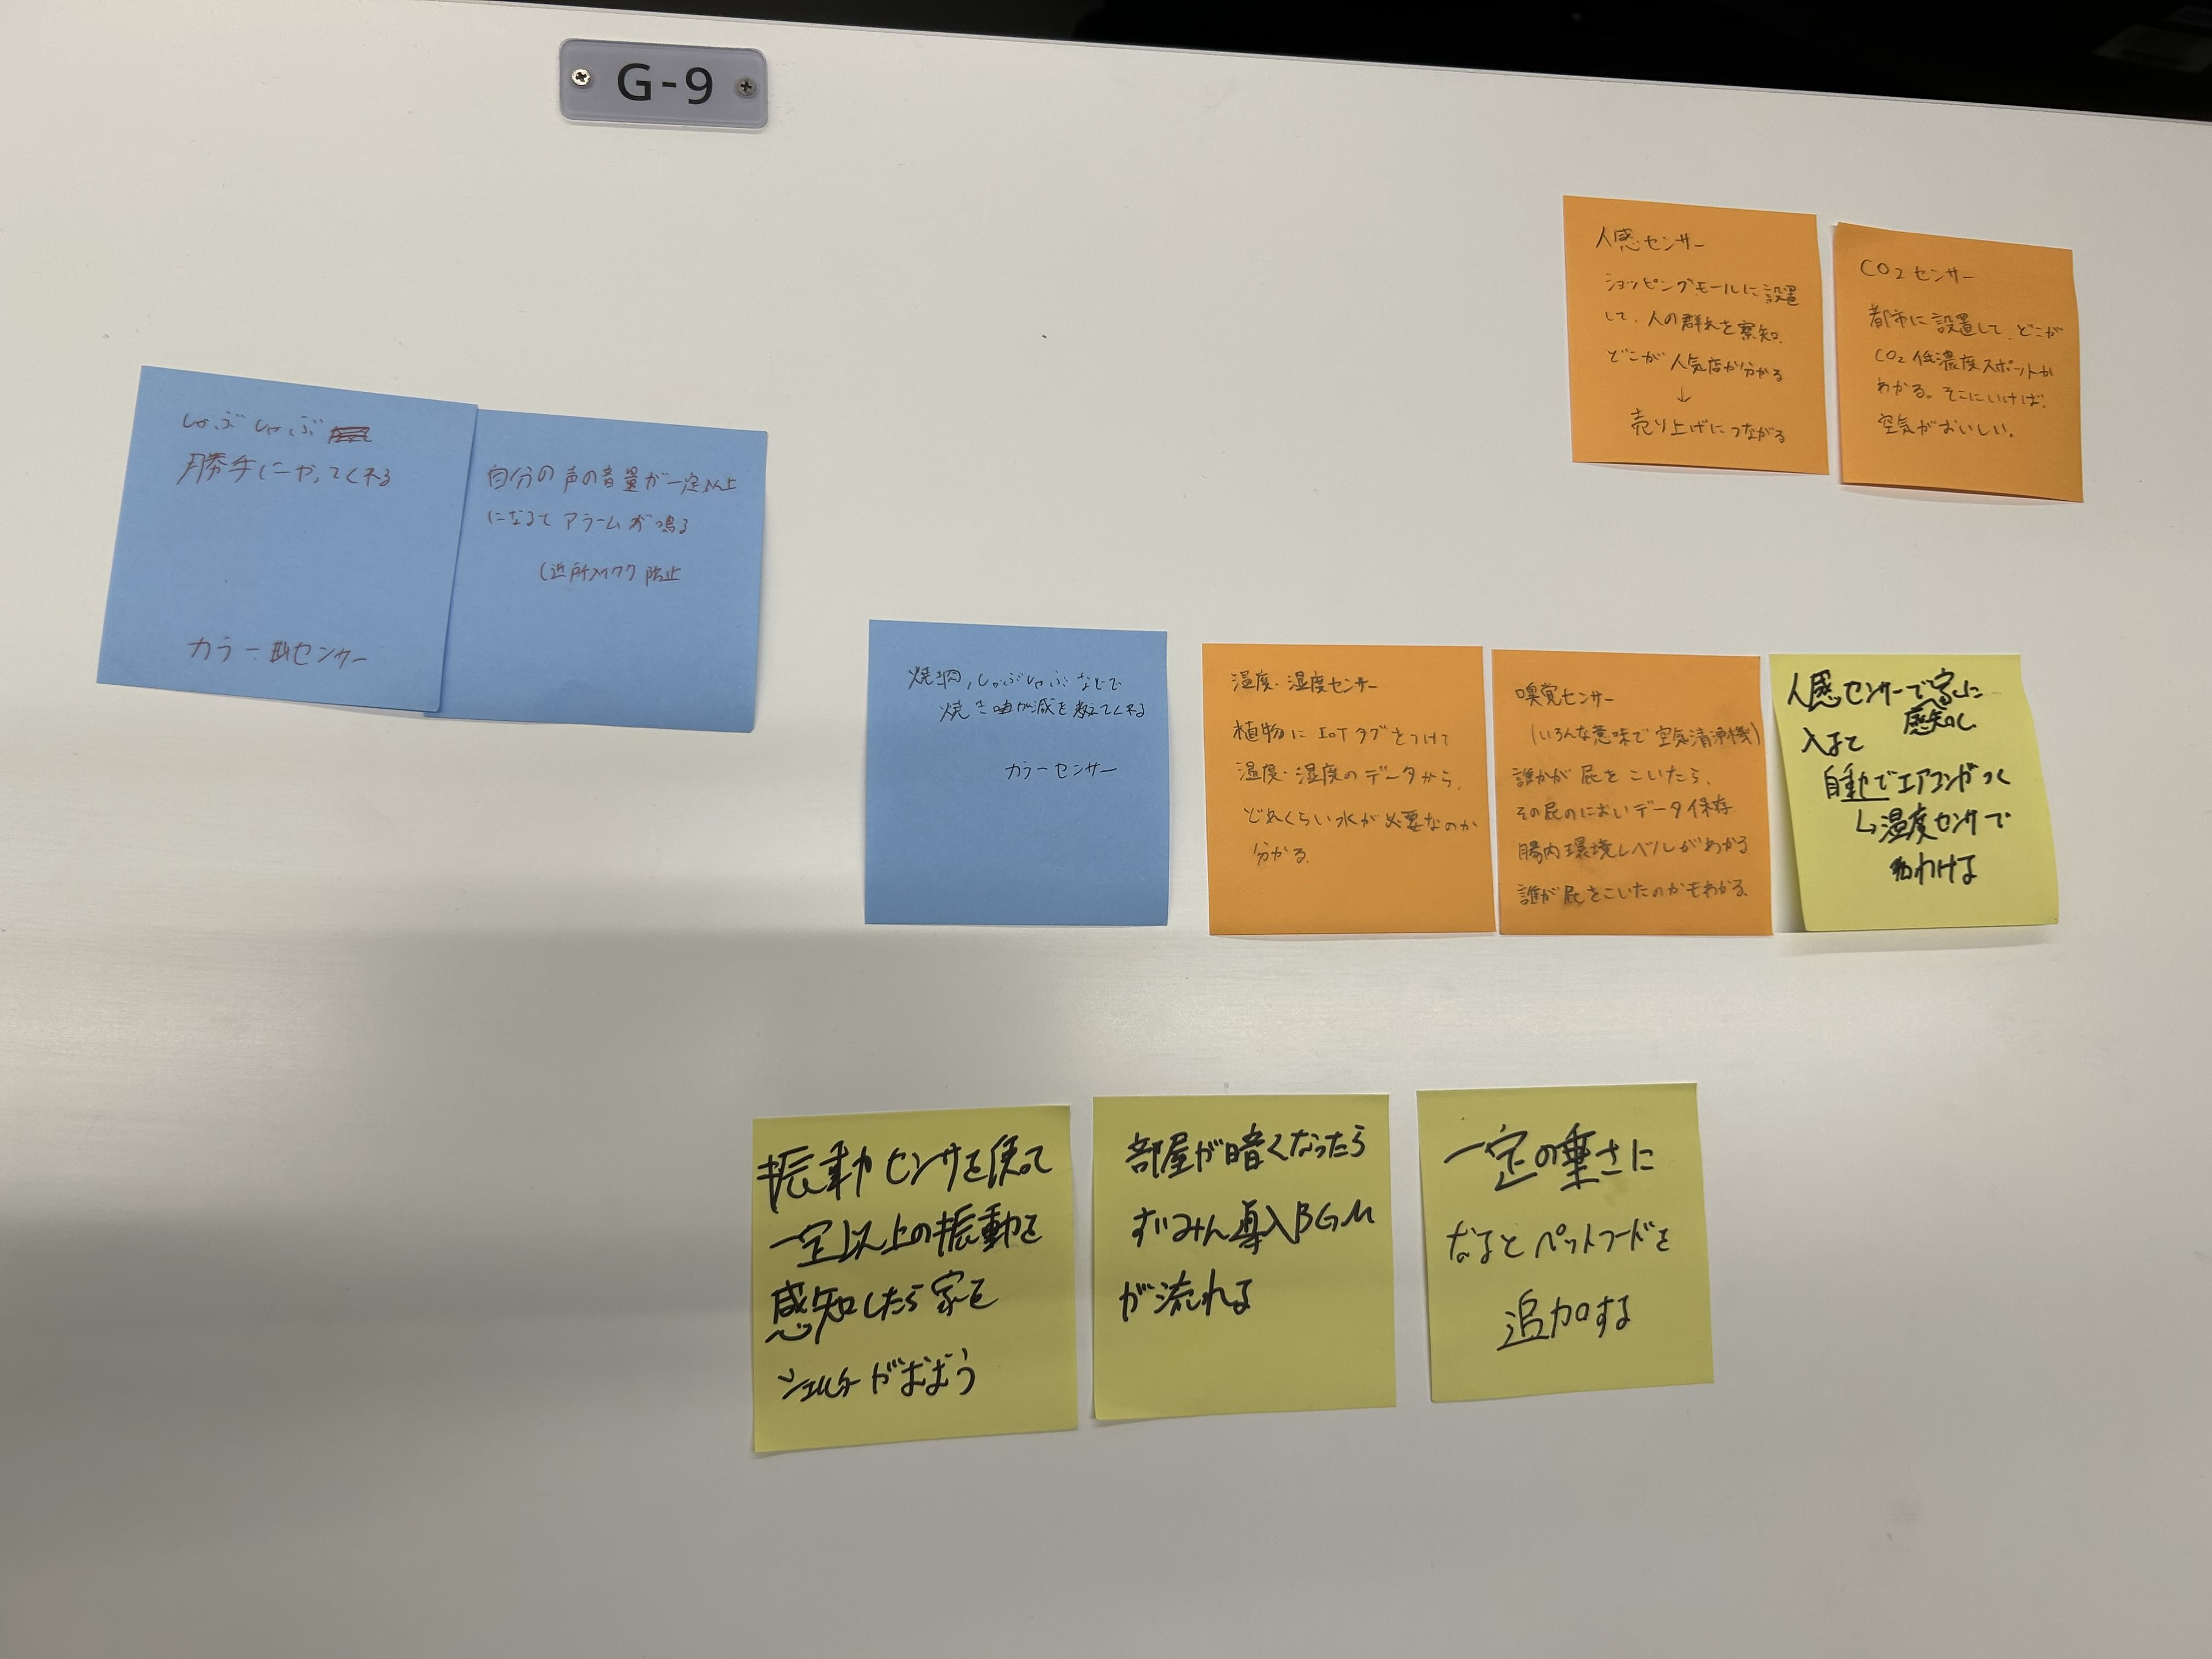 G-9
人感センサー
ショッピングモールに設置
して、人の群れを察知。
どこが人気店か分かる
↓
売り上げにつながる
CO2センサー
都市に設置して、どこが
CO2低濃度スポットか
わかる。そこにいけば、
空気がおいしい。
しゃぶしゃぶ
勝手にやってくれる
カラーセンサー
自分の声の音量が一定以上
になるとアラームが鳴る
(近所メイワク防止
焼肉,しゃぶしゃぶなどで
焼き加減を教えてくれる
カラーセンサー
温度・湿度センサー
植物にIoTタグをつけて
温度・湿度のデータから、
どれくらい水が必要なのか
分かる。
嗅覚センサー
(いろんな意味で空気清浄機)
誰かが屁をこいたら、
その屁のにおいデータ保存
腸内環境レベルがわかる
誰が屁をこいたのかもわかる。
人感センサーで家に
感知し
入ると
自動でエアコンがつく
↳温度センサで
わける
振動センサを使って
一定以上の振動を
感知したら家を
シェルターがおおう
部屋が暗くなったら
すいみん導入BGM
が流れる
一定の重さに
なるとペットフードを
追加する